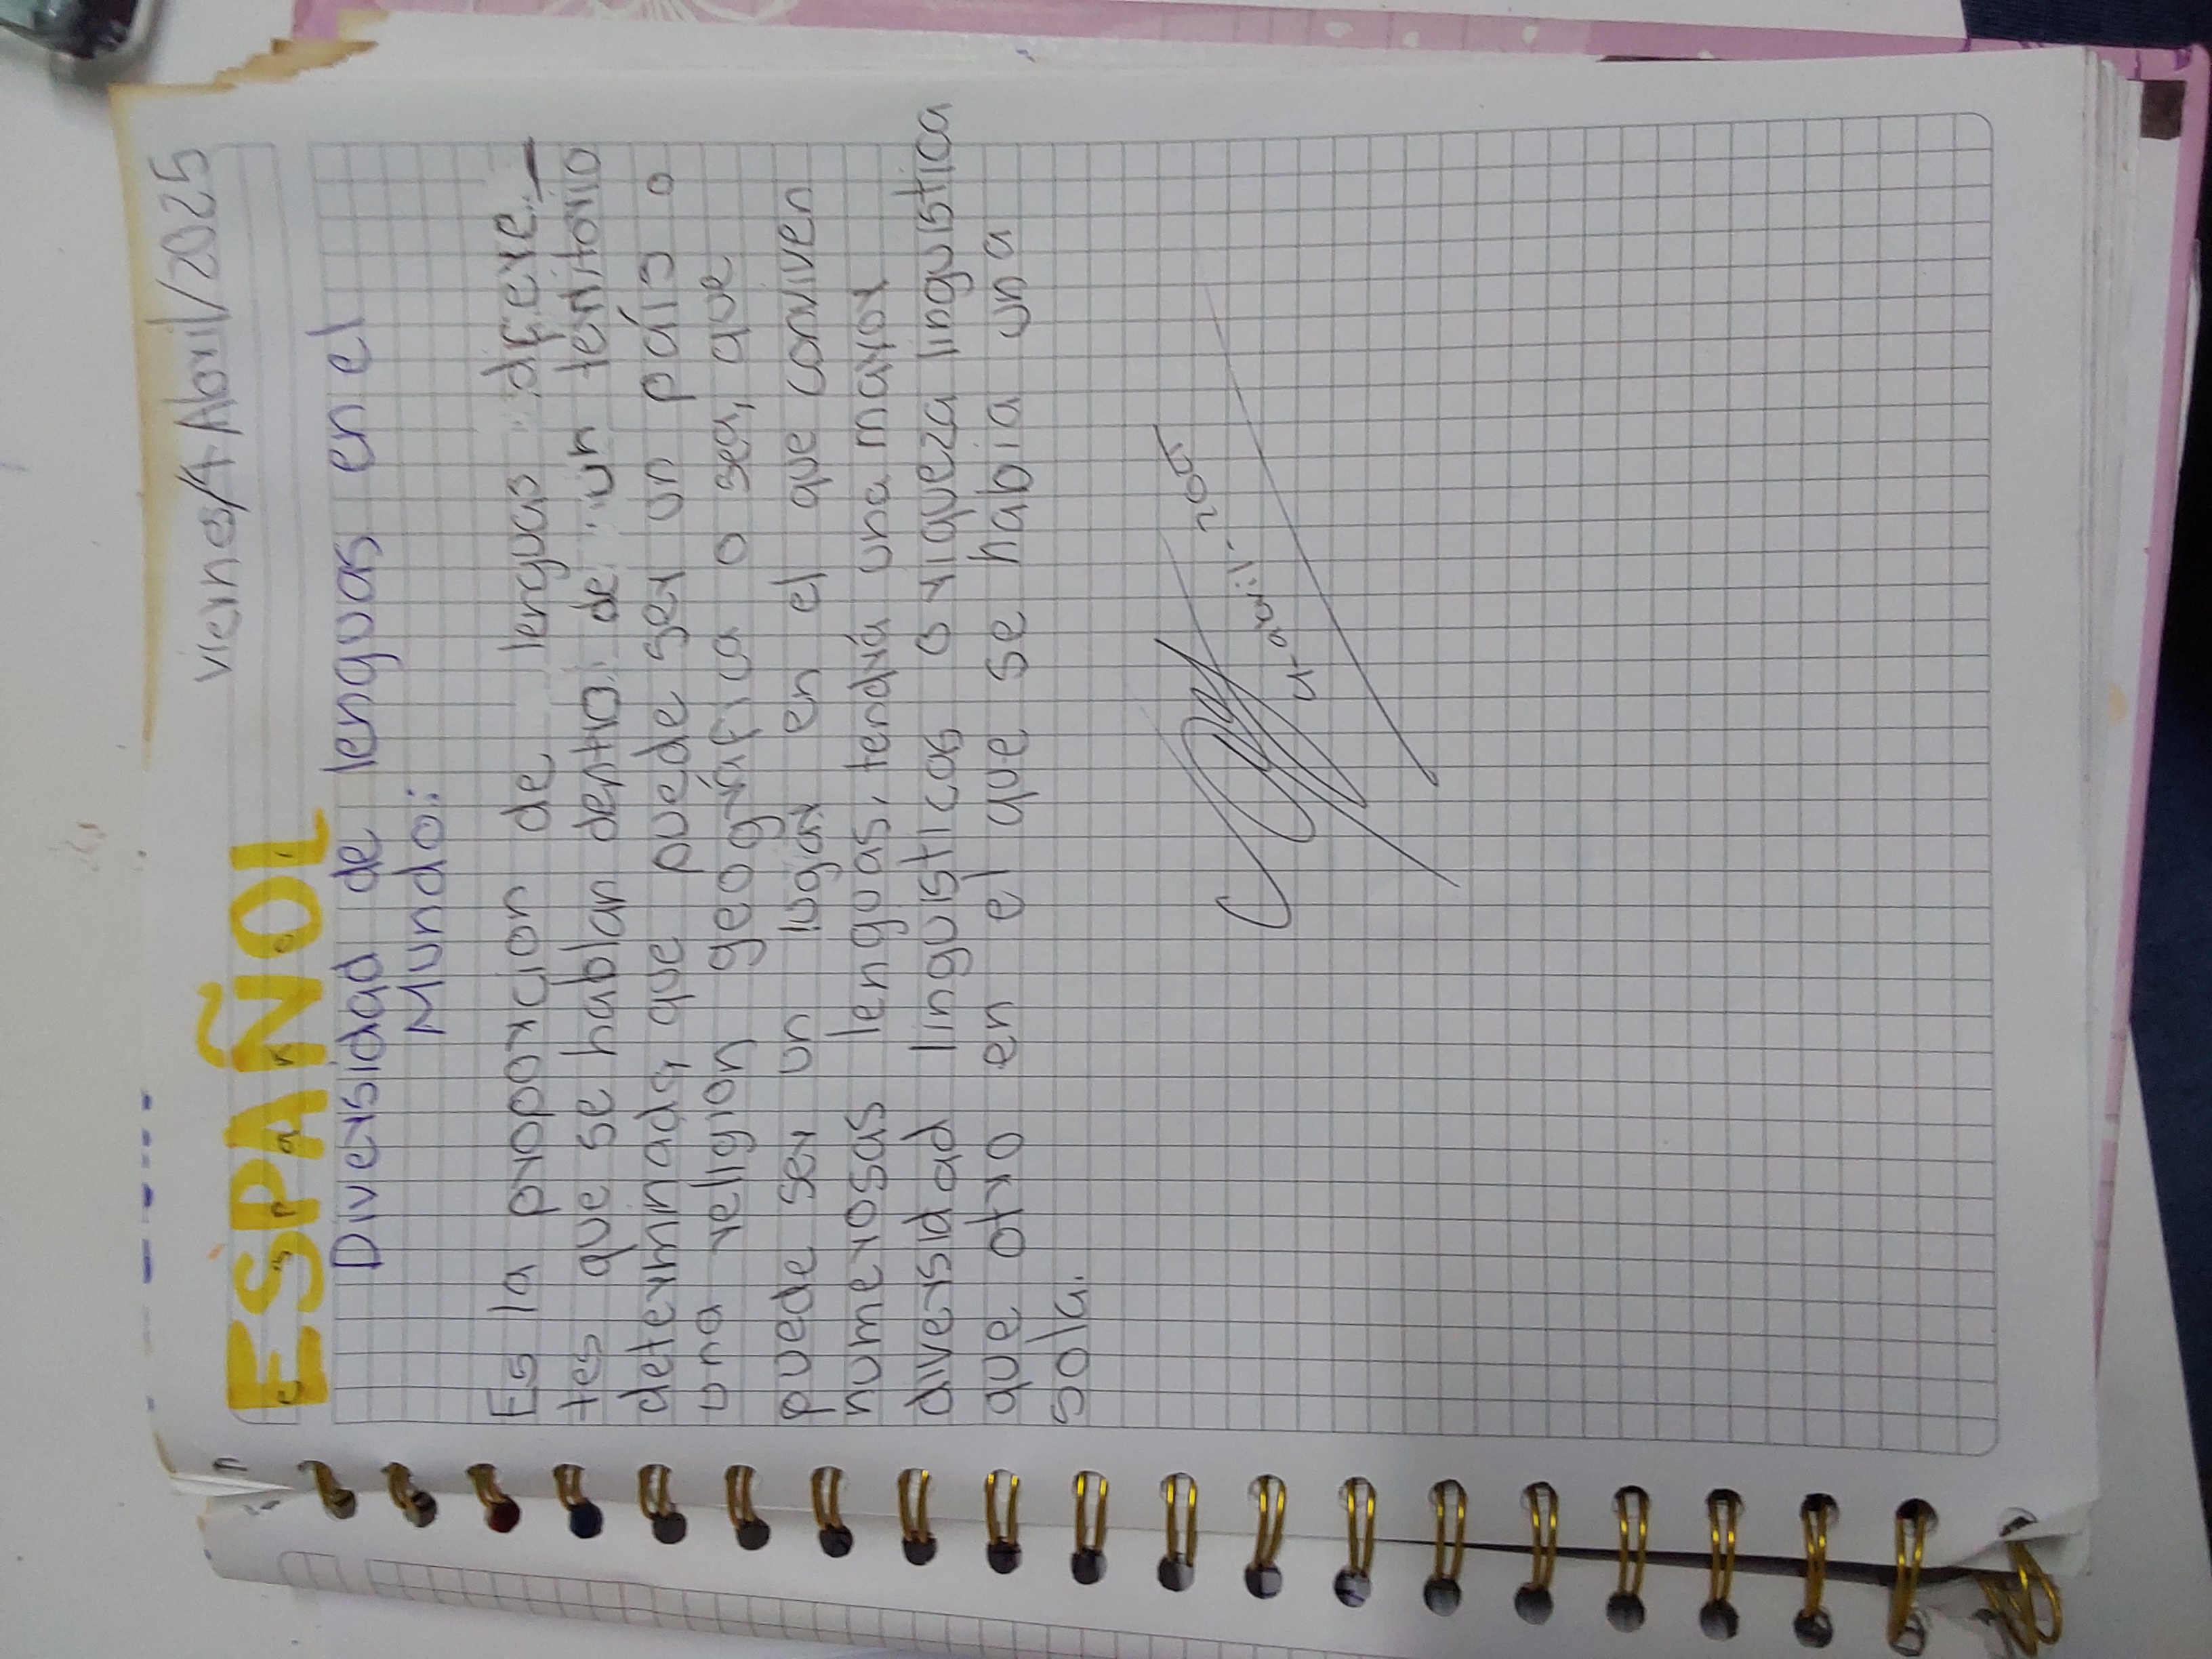 Viernes/4 Abril/2025
ESPAÑOL
Diversidad de lenguas en el
Mundo:
Es la proporcion de lenguas difere_
tes que se hablan dentro de un territorio
determinads, que puede ser un país o
una religion geográfica o sea, que
puede ser un lugar en el que conviven
numerosas lenguas, tendrá una mayor
diversidad linguisticas o riqueza linguistica
que otro en el que se habia una
sola.
4-abril-2025